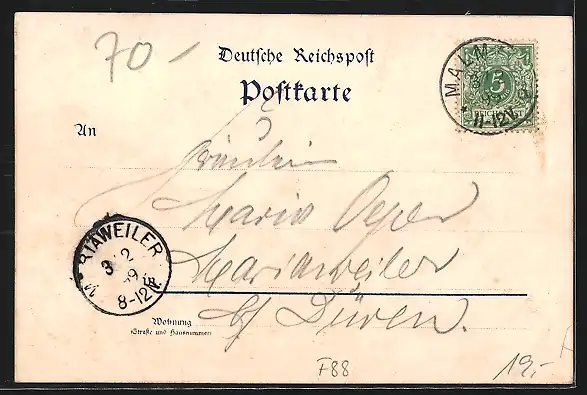 70 -
Deutsche Reichspost
Postkarte
MALM
5
11-12V.
An
Fräulein
Maria
Mariaweiler
b/ Düren.
RIAWEILER
3 2
8-12V.
Wohnung
(Straße und Hausnummer)
F88
19,-